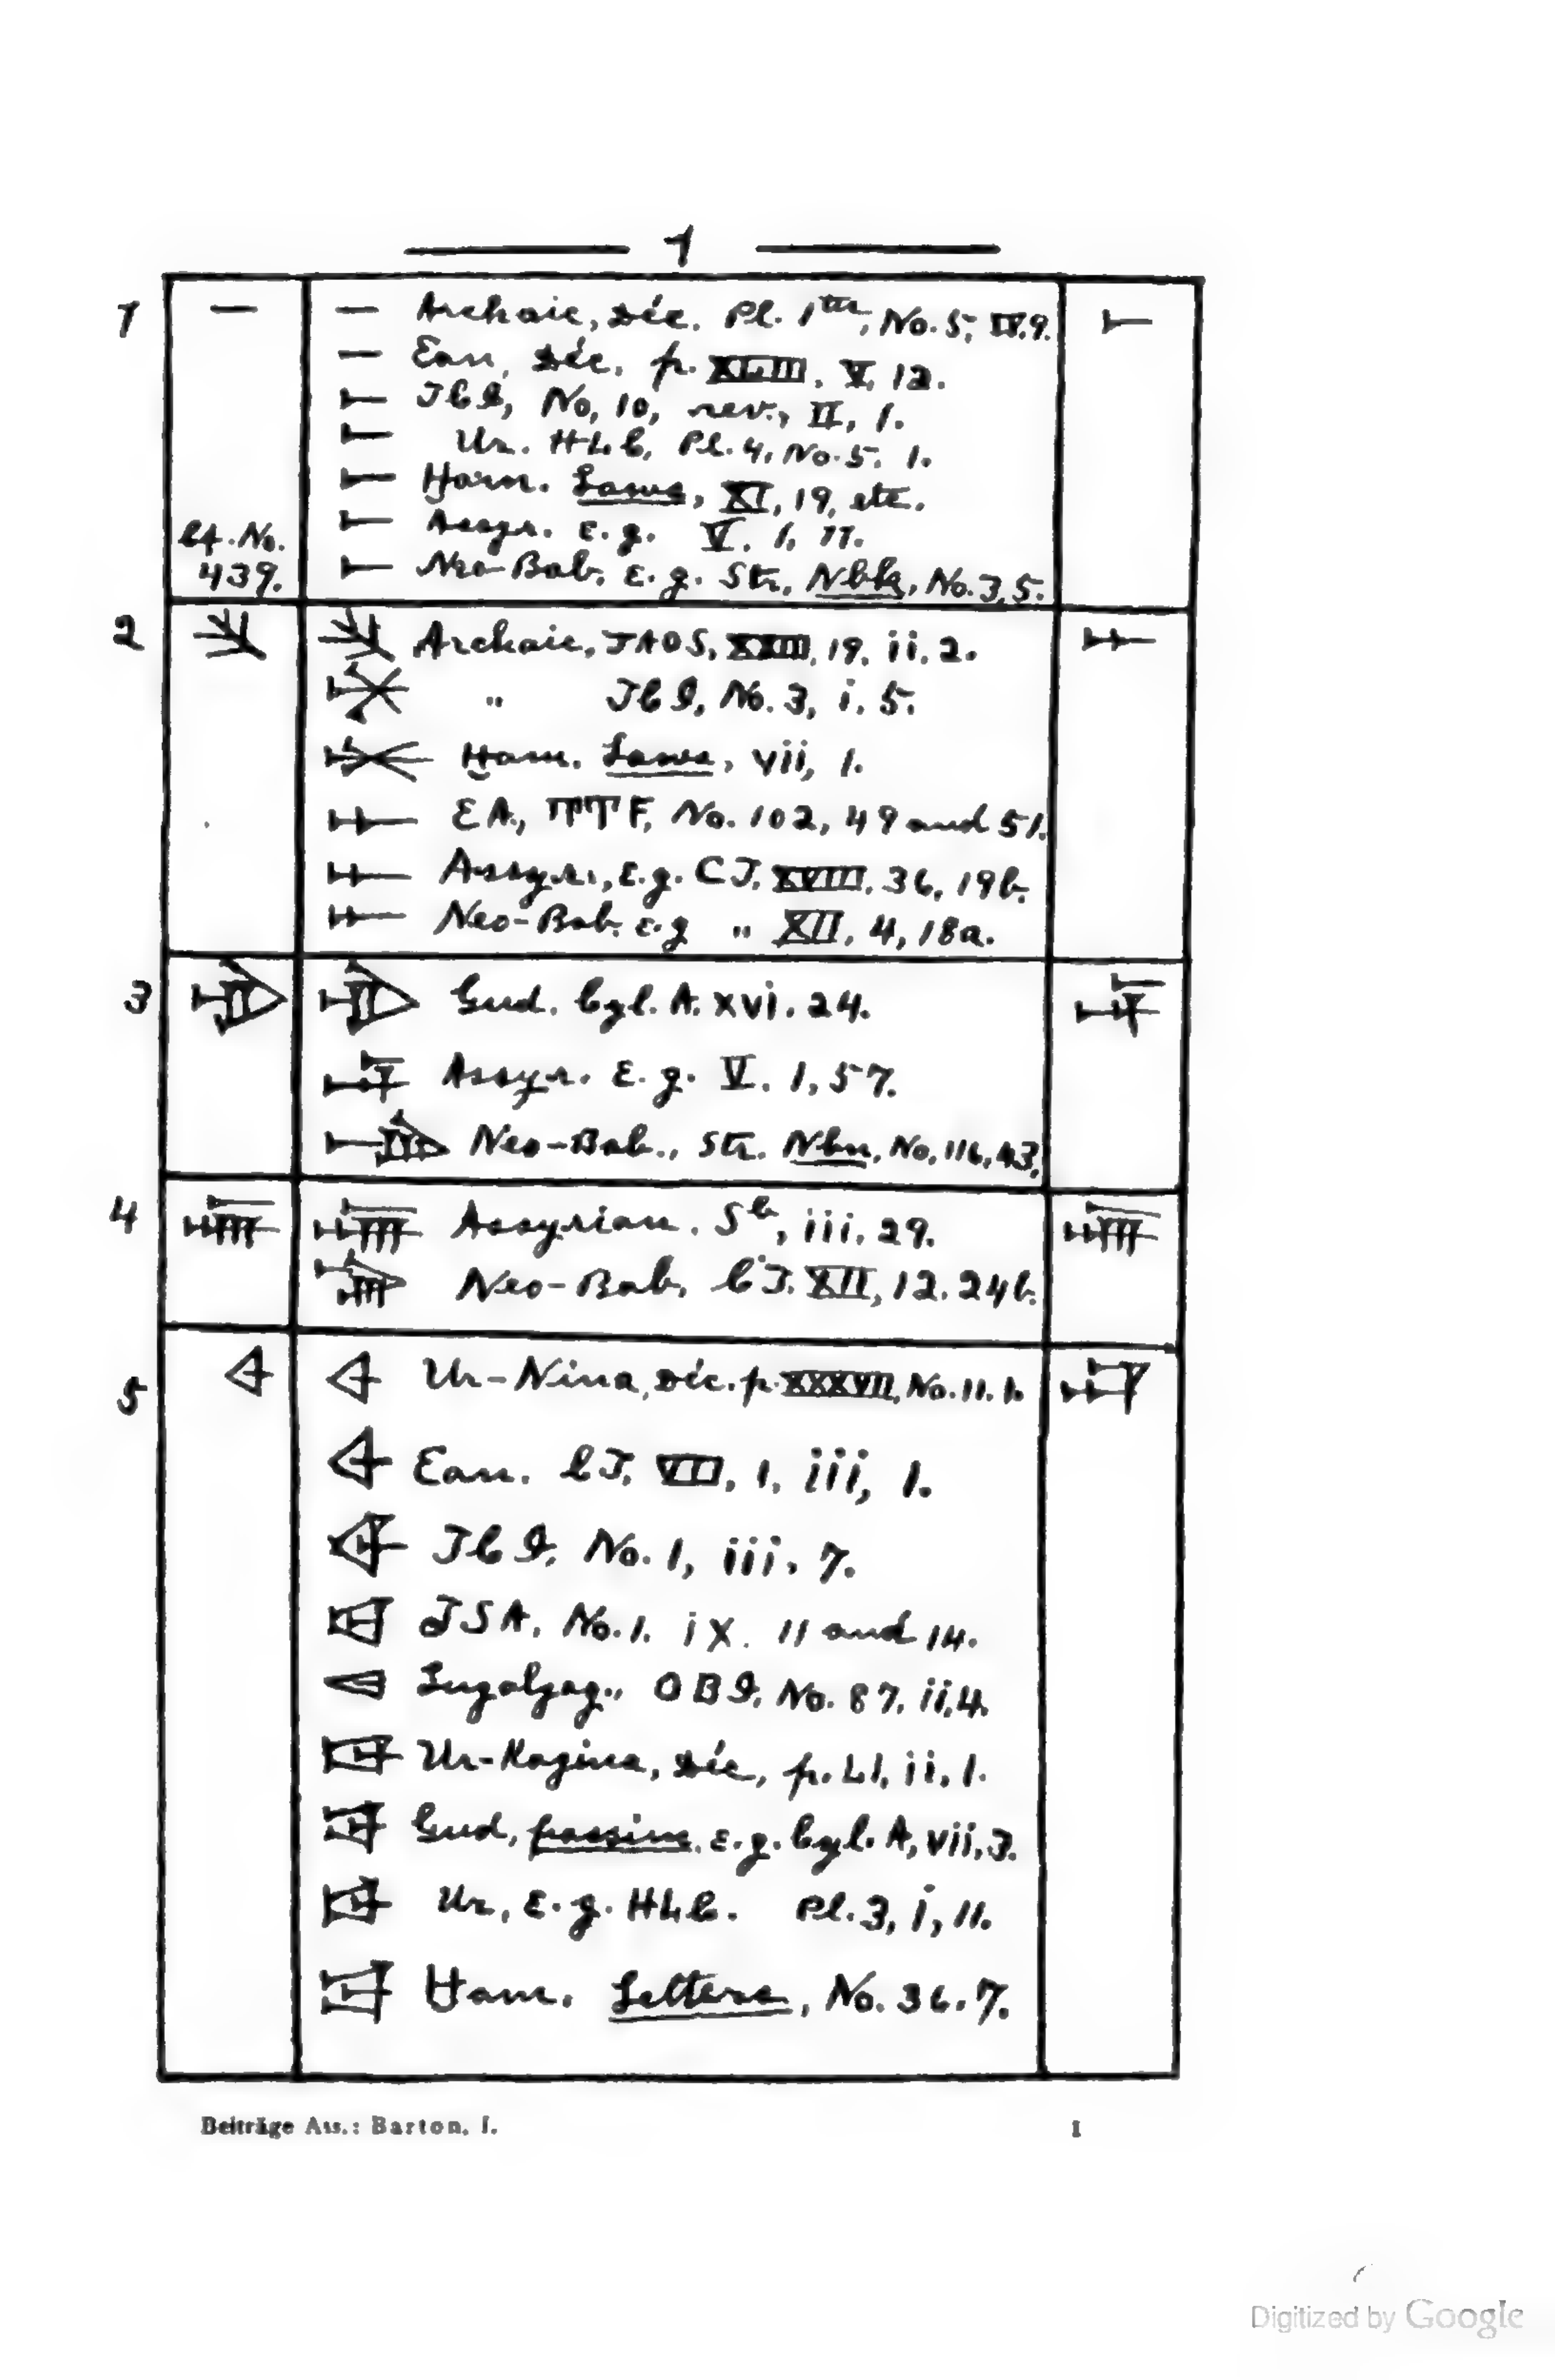 1
1 Archaic, Déc. Pl. 1ter, No. 5, IV.9.
Ean, Déc. p. XLIII, V, 12.
TCI, No, 10, rev., II, 1.
Ur. HLC, Pl. 4, No. 5. 1.
Ḫam. Laws, XI, 19, etc.
Assyr. e.g. V. 1, 11.
Cf. No.
439.
Neo-Bab. e.g. Str., Nbk, No. 3, 5.
2 Archaic, JAOS, XXIII, 19. ii. 2.
" TCI, No. 3, i. 5.
Ḫam. Laws, vii, 1.
EA, TTF, No. 102, 49 and 51.
Assyr., e.g. CT. XVIII. 36, 19b.
Neo-Bab. e.g " XII, 4, 18a.
3 Gud. Cyl. A. xvi. 24.
Assyr. e.g. V. 1, 57.
Neo-Bab., Str. Nbn, No, 116, 43,
4 Assyrian. Sb, iii. 29.
Neo-Bab, CT. XII, 12. 24b.
5 Ur-Nina, Déc. p. XXXVII, No. 11. 1.
Ean. CT. VII, 1, iii, 1.
TCI, No. 1, iii. 7.
TSA, No. 1. ix. 11 and 14.
Lugalzag., OBI, No. 87. ii, 4.
Ur-Kagina, Déc, p. LI, ii, 1.
Gud, passim, e.g. Cyl. A, vii, 3.
Ur, e.g. HLC. Pl. 3, i, 11.
Ḫam. Letters, No. 36. 7.
Beiträge Ass.: Barton, I.
1
Digitized by Google